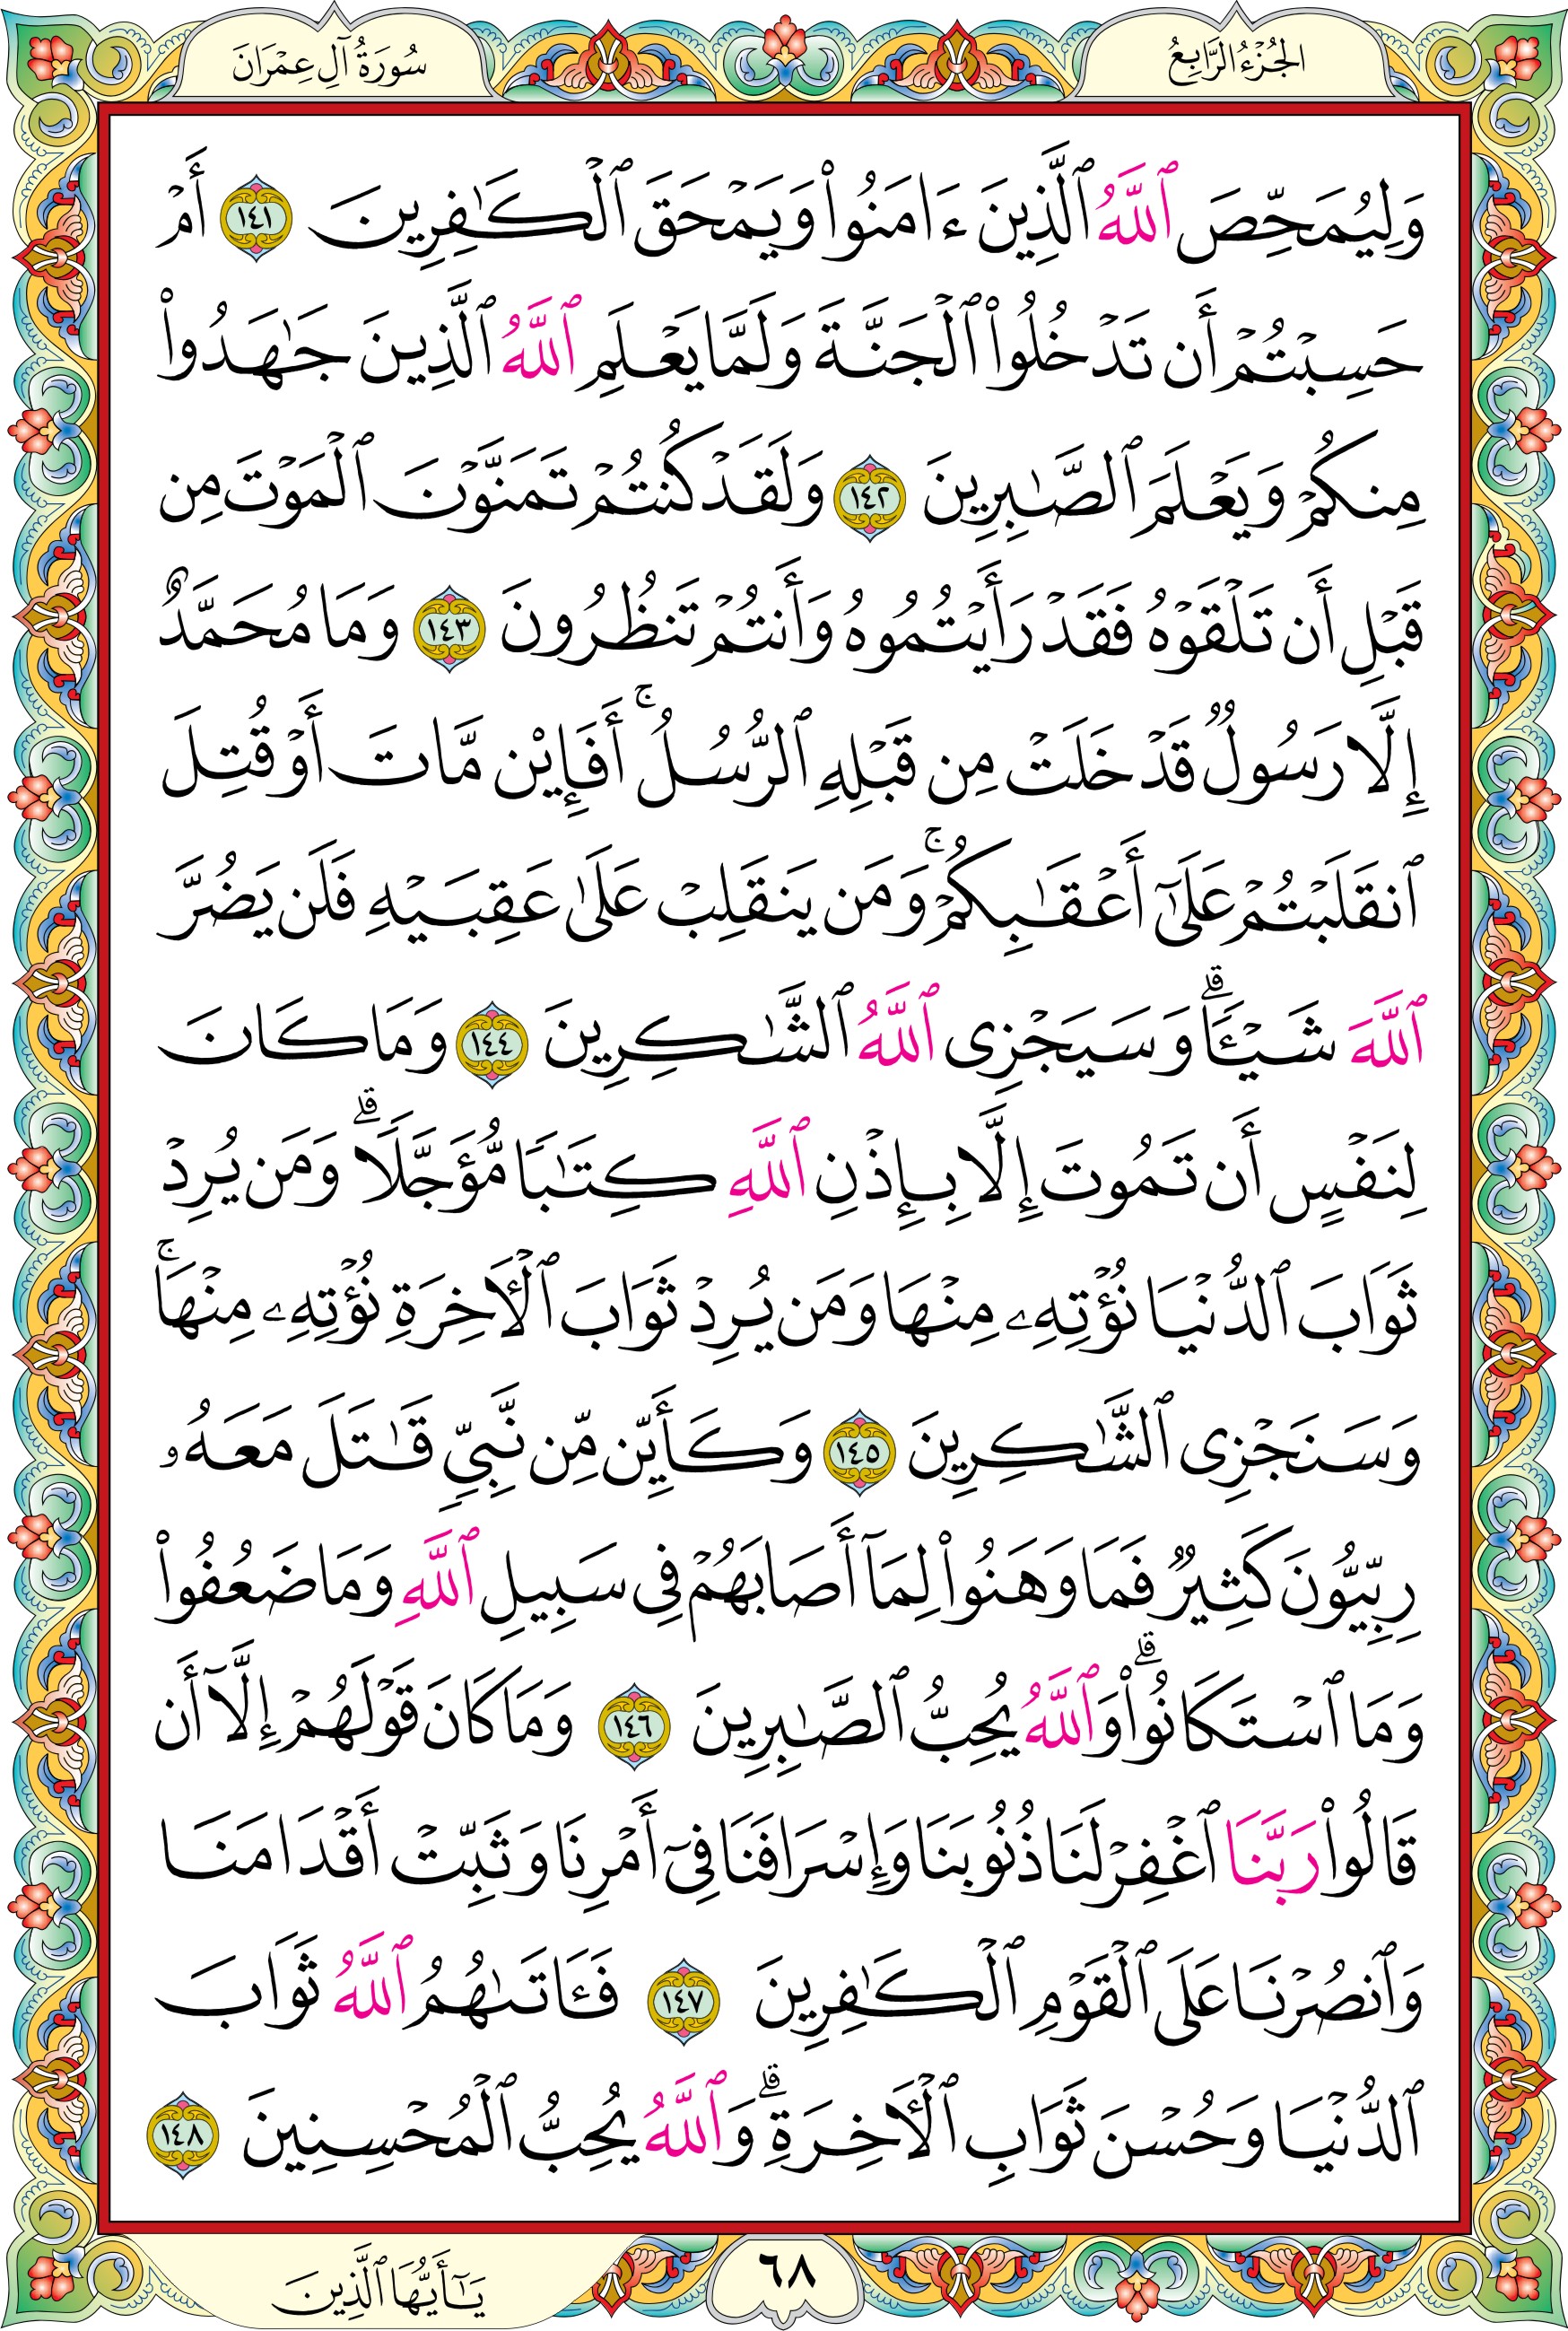 الجُزْءُ الرَّابِعُ
سُورَةُ آلِ عِمْرَانَ
وَلِيُمَحِّصَ ٱللَّهُ ٱلَّذِينَ ءَامَنُوا۟ وَيَمْحَقَ ٱلْكَـٰفِرِينَ ١٤١ أَمْ
حَسِبْتُمْ أَن تَدْخُلُوا۟ ٱلْجَنَّةَ وَلَمَّا يَعْلَمِ ٱللَّهُ ٱلَّذِينَ جَـٰهَدُوا۟
مِنكُمْ وَيَعْلَمَ ٱلصَّـٰبِرِينَ ١٤٢ وَلَقَدْ كُنتُمْ تَمَنَّوْنَ ٱلْمَوْتَ مِن
قَبْلِ أَن تَلْقَوْهُ فَقَدْ رَأَيْتُمُوهُ وَأَنتُمْ تَنظُرُونَ ١٤٣ وَمَا مُحَمَّدٌ
إِلَّا رَسُولٌ قَدْ خَلَتْ مِن قَبْلِهِ ٱلرُّسُلُ ۚ أَفَإِي۟ن مَّاتَ أَوْ قُتِلَ
ٱنقَلَبْتُمْ عَلَىٰٓ أَعْقَـٰبِكُمْ ۚ وَمَن يَنقَلِبْ عَلَىٰ عَقِبَيْهِ فَلَن يَضُرَّ
ٱللَّهَ شَيْـًٔا ۗ وَسَيَجْزِى ٱللَّهُ ٱلشَّـٰكِرِينَ ١٤٤ وَمَا كَانَ
لِنَفْسٍ أَن تَمُوتَ إِلَّا بِإِذْنِ ٱللَّهِ كِتَـٰبًا مُّؤَجَّلًا ۗ وَمَن يُرِدْ
ثَوَابَ ٱلدُّنْيَا نُؤْتِهِۦ مِنْهَا وَمَن يُرِدْ ثَوَابَ ٱلْـَٔاخِرَةِ نُؤْتِهِۦ مِنْهَا ۚ
وَسَنَجْزِى ٱلشَّـٰكِرِينَ ١٤٥ وَكَأَيِّن مِّن نَّبِىٍّ قَـٰتَلَ مَعَهُۥ
رِبِّيُّونَ كَثِيرٌ فَمَا وَهَنُوا۟ لِمَآ أَصَابَهُمْ فِى سَبِيلِ ٱللَّهِ وَمَا ضَعُفُوا۟
وَمَا ٱسْتَكَانُوا۟ ۗ وَٱللَّهُ يُحِبُّ ٱلصَّـٰبِرِينَ ١٤٦ وَمَا كَانَ قَوْلَهُمْ إِلَّآ أَن
قَالُوا۟ رَبَّنَا ٱغْفِرْ لَنَا ذُنُوبَنَا وَإِسْرَافَنَا فِىٓ أَمْرِنَا وَثَبِّتْ أَقْدَامَنَا
وَٱنصُرْنَا عَلَى ٱلْقَوْمِ ٱلْكَـٰفِرِينَ ١٤٧ فَـَٔاتَىٰهُمُ ٱللَّهُ ثَوَابَ
ٱلدُّنْيَا وَحُسْنَ ثَوَابِ ٱلْـَٔاخِرَةِ ۗ وَٱللَّهُ يُحِبُّ ٱلْمُحْسِنِينَ ١٤٨
٦٨
يَـٰٓأَيُّهَا ٱلَّذِينَ